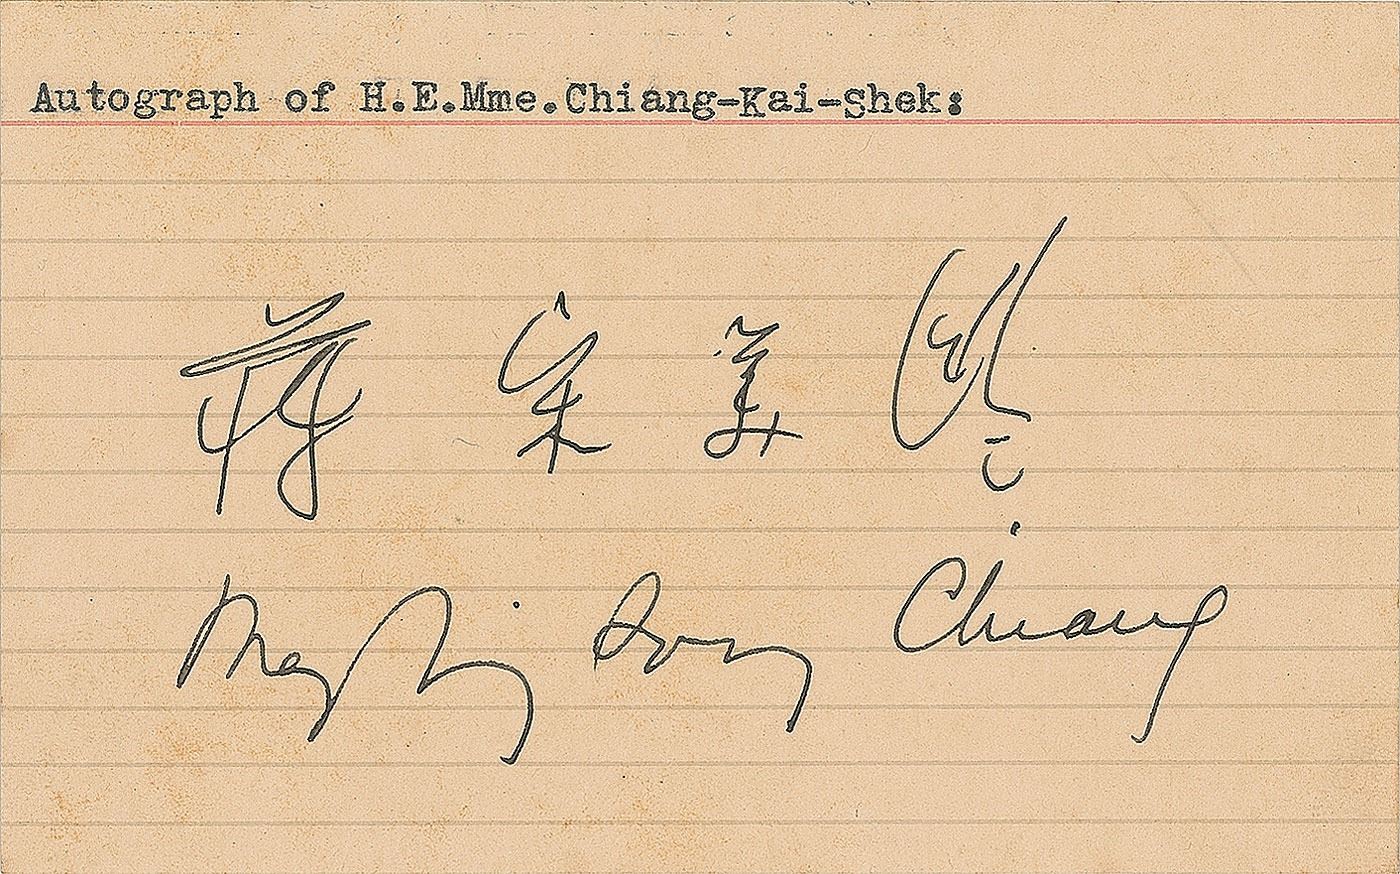 Autograph of H.E.Mme.Chiang-Kai-Shek:
蔣宋美齡
Mayling Soong Chiang